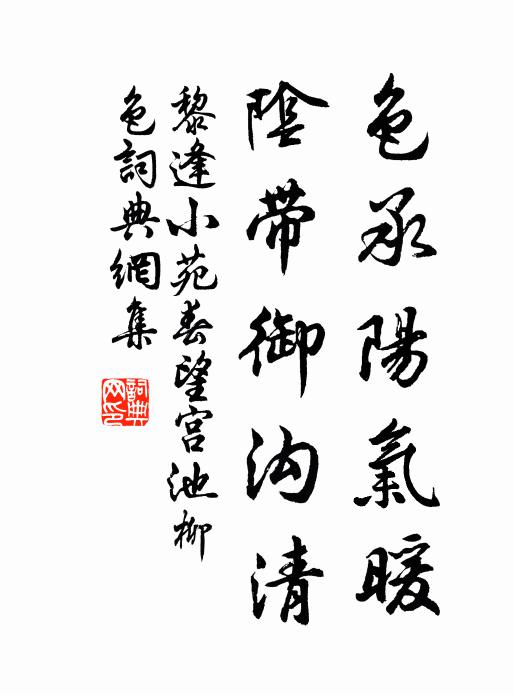 色承陽氣暖
陰帶御沟清
黎逢小苑春望宫池柳
色詞典網集
詞典网印